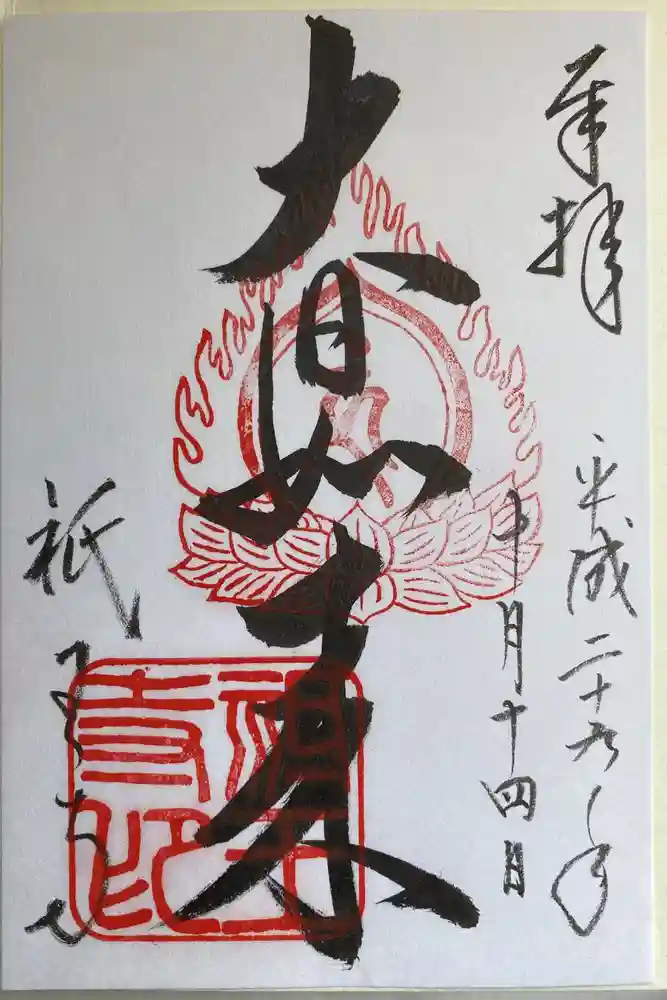 奉拝
平成二十九年
十月十四日
大日如来
祇
祇王寺印